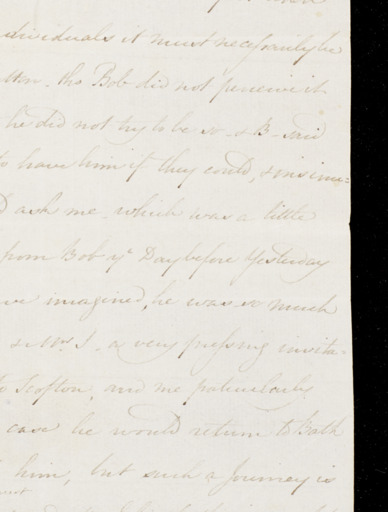 dividuals it must necessarily be
tho Bob did not perceive it
he did not try to be so - & B - said
to have him if they could, & insinu=
ask me - which was a little
from Bob yᵉ Day before Yesterday
imagined, he was so much
& Mrs. S. a very pressing invita-
to Scofton, and me particularly
case he would return to Bath
him, but such a Journey is